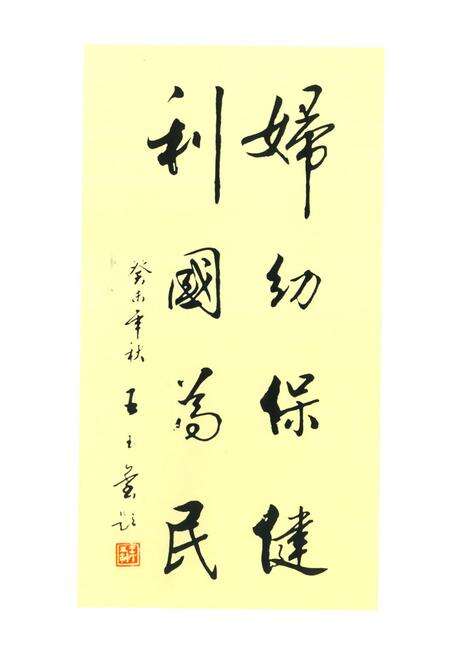 婦幼保健
利國為民
癸未年秋